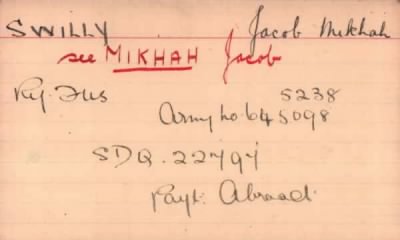 SWILLY Jacob Mikhah
see MIKHAH Jacob
Ry. Fus 5238
Army no. 645098
SDQ. 22797
Payt. Abroad.